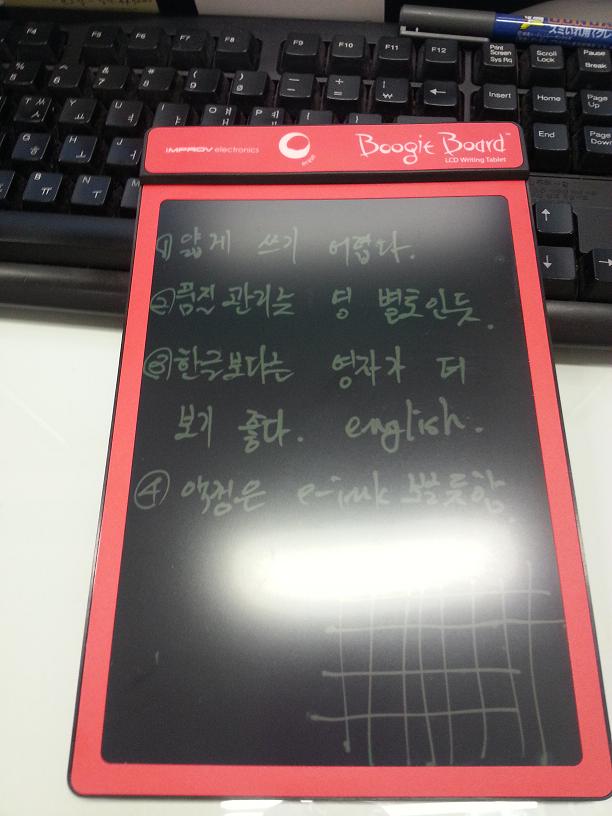 F4 F5 F6 F7 F8 F9 F10 F11 F12 Print Screen Sys Rq Scroll Lock Pause
Insert Home Page Up
End Page Down
スミいれ用
IMPROV electronics
Boogie Board™
LCD Writing Tablet
① 얇게 쓰기 어렵다.
② 품질관리는 영 별로인듯.
③ 한글보다는 영자가 더
보기 좋다. english.
④ 액정은 e-ink